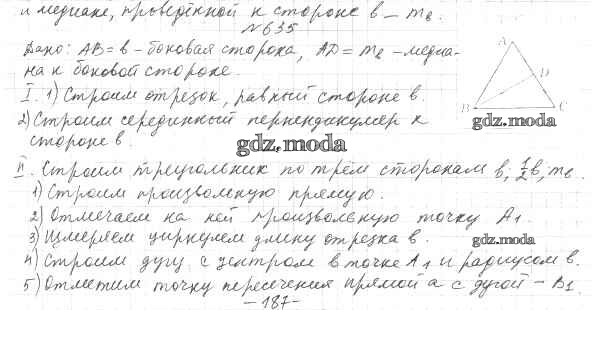 и медиане, проведённой к стороне b – m_b.
№635
Дано: AB = b – боковая сторона, AD = m_b – медиа-
на к боковой стороне.
I. 1) Строим отрезок, равный стороне b.
2) Строим серединный перпендикуляр к
стороне b.
II. Строим треугольник по трём сторонам b; 1/2 b; m_b.
1) Строим произвольную прямую.
2) Отмечаем на ней произвольную точку A₁.
3) Измеряем циркулем длину отрезка b.
4) Строим дугу с центром в точке A₁ и радиусом b.
5) Отметим точку пересечения прямой a с дугой – B₁.
– 187 –
A
D
B C
gdz.moda
gdz.moda
gdz.moda